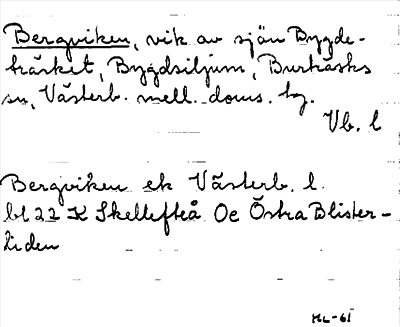 Bergviken, vik av sjön Bygde-
träsket, Bygdsiljum, Burträsks
sn, Västerb. mell. doms. tg.
Vb. l
Bergviken ek Västerb. l.
bl 22 K Skellefteå Oe Östra Blister-
liden
ML-61